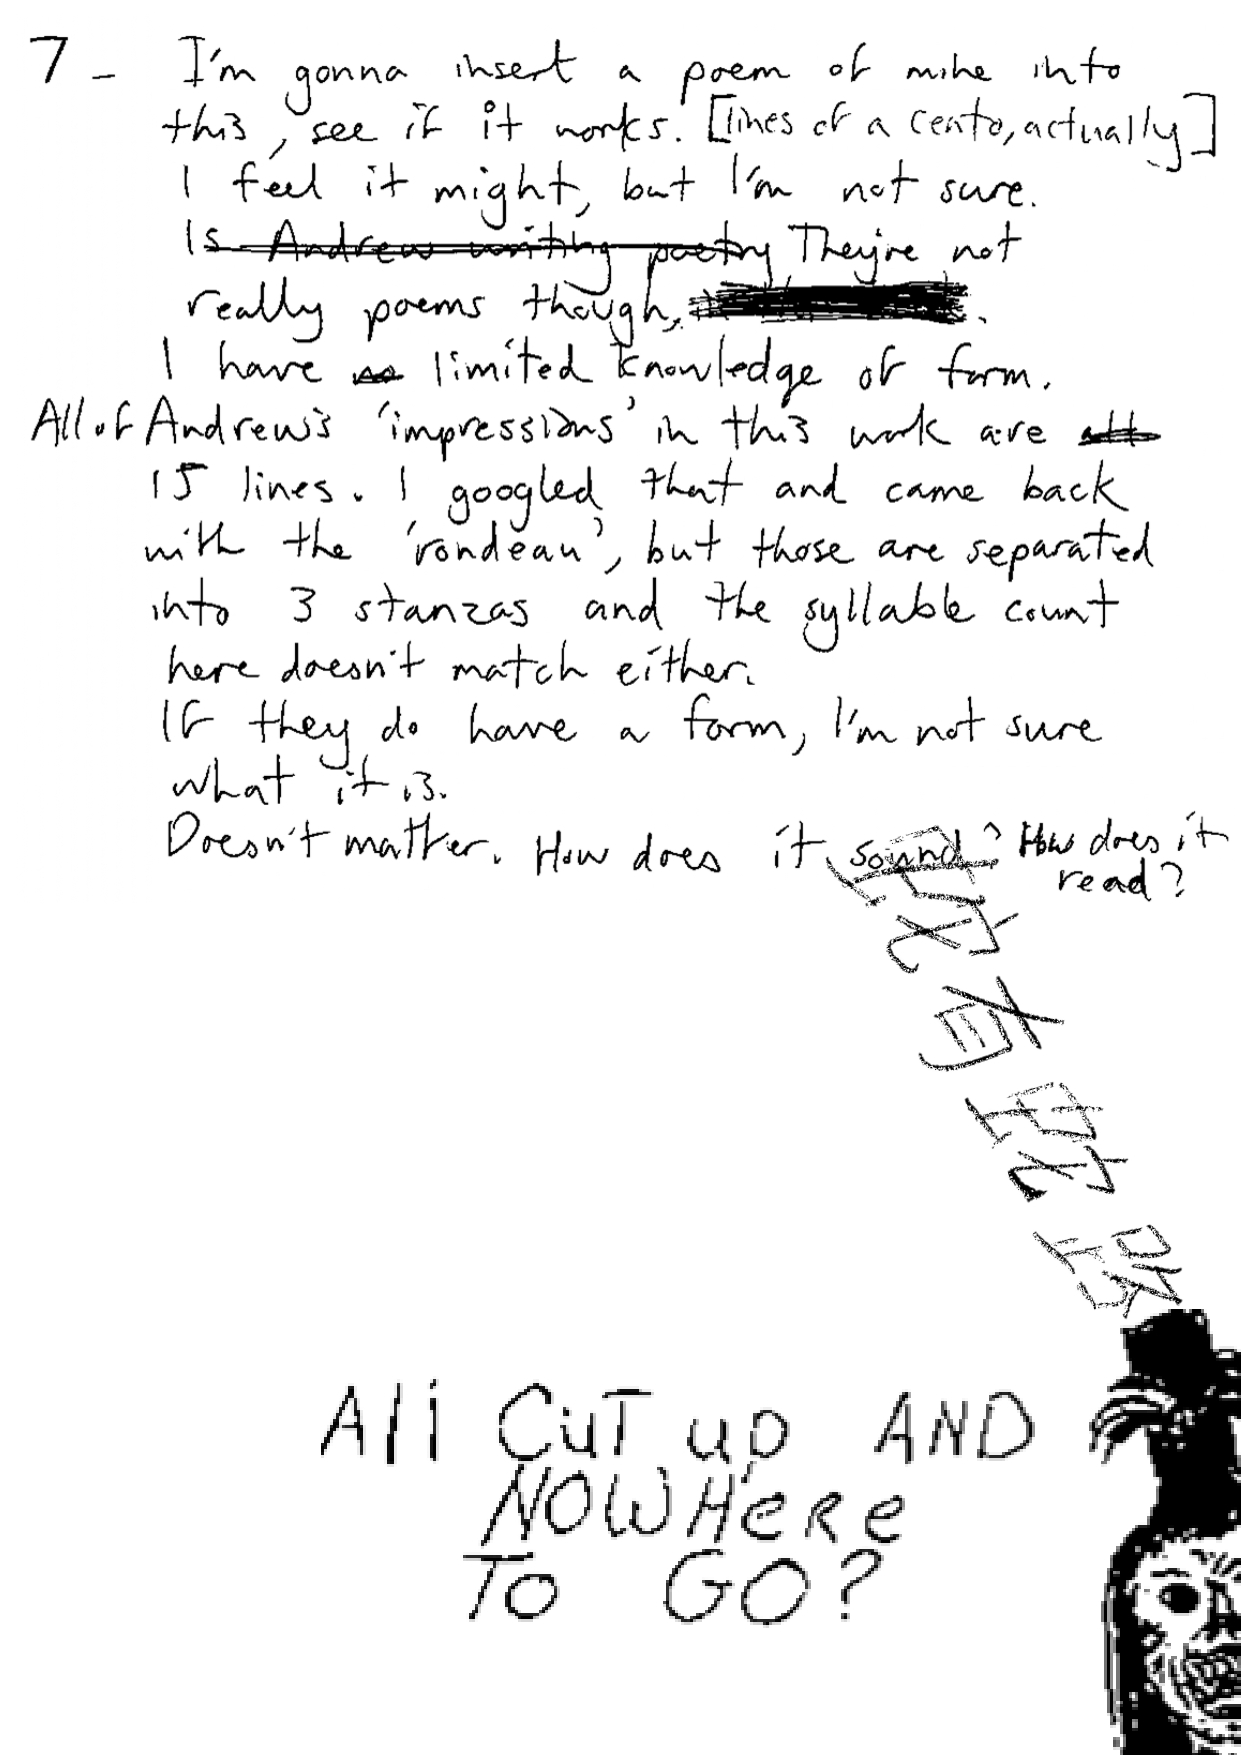 7 - I'm gonna insert a poem of mine into
this, see if it works. [lines of a cento, actually]
I feel it might, but I'm not sure.
Is Andrew writing poetry They're not
really poems though, .
I have limited knowledge of form.
All of Andrew's 'impressions' in this work are
15 lines. I googled that and came back
with the 'rondeau', but those are separated
into 3 stanzas and the syllable count
here doesn't match either.
If they do have a form, I'm not sure
what it is.
Doesn't matter. How does it sound? How does it
read?
有
All CUT up AND
NOWHeRe
To GO?